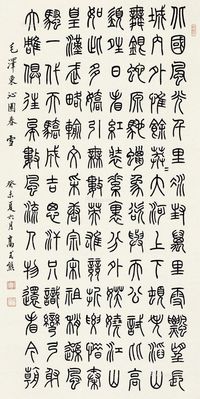 北國風光千里冰封萬里雪飄望長
城內外惟餘莽=大河上下頓失滔=山
舞銀蛇原馳蠟象欲與天公試比高
須晴日看紅裝素裹分外妖嬈江山
如此多嬌引無數英雄競折腰惜秦
皇漢武略輸文采唐宗宋祖稍遜風
騷一代天驕成吉思汗只識彎弓射
大雕俱往矣數風流人物還看今朝
毛澤東沁園春雪 癸未夏六月高式熊